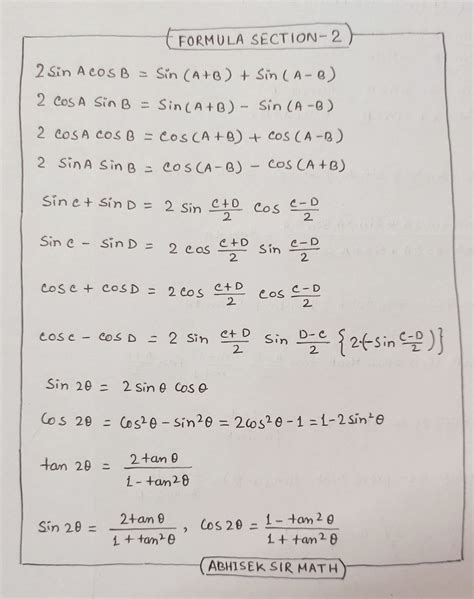 FORMULA SECTION-2
2 Sin A cos B = Sin (A+B) + Sin (A-B)
2 cos A Sin B = Sin (A+B) - Sin (A-B)
2 cos A cos B = cos (A+B) + cos (A-B)
2 Sin A Sin B = cos (A-B) - cos (A+B)
Sin c + Sin D = 2 Sin (c+D)/2 cos (c-D)/2
Sin c - Sin D = 2 cos (c+D)/2 Sin (c-D)/2
cos c + cos D = 2 cos (c+D)/2 cos (c-D)/2
cos c - cos D = 2 Sin (c+D)/2 Sin (D-c)/2 {2·(-sin (c-D)/2)}
Sin 2θ = 2 sin θ cos θ
Cos 2θ = cos²θ - sin²θ = 2cos²θ - 1 = 1 - 2 sin²θ
tan 2θ = 2 tan θ / 1 - tan²θ
Sin 2θ = 2 tan θ / 1 + tan²θ , Cos 2θ = 1 - tan²θ / 1 + tan²θ
ABHISEK SIR MATH